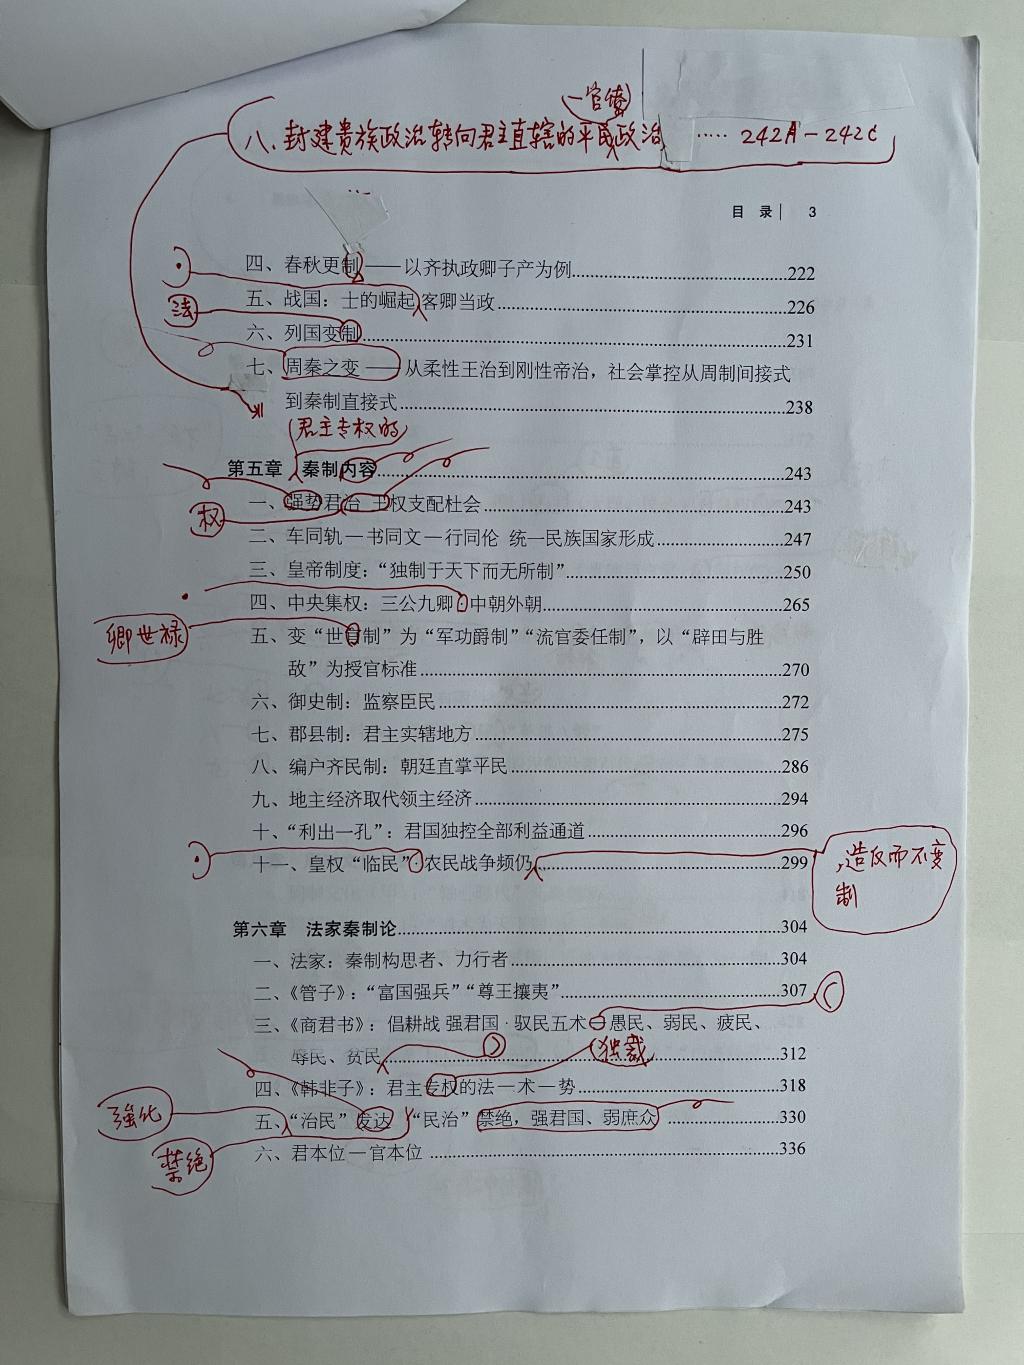 一官僚
八、封建贵族政治转向君主直辖的平民政治 ····· 242A－242C
目 录 3
四、春秋更制——以齐执政卿子产为例 222
五、战国：士的崛起 客卿当政 226
法
六、列国变制 231
七、周秦之变——从柔性王治到刚性帝治，社会掌控从周制间接式
到秦制直接式 238
（君主专权的）
第五章 秦制内容 243
一、强势君治 王权支配杜会 243
权
二、车同轨—书同文—行同伦 统一民族国家形成 247
三、皇帝制度：“独制于天下而无所制” 250
四、中央集权：三公九卿·中朝外朝 265
卿世禄
五、变“世官制”为“军功爵制”“流官委任制”，以“辟田与胜
敌”为授官标准 270
六、御史制：监察臣民 272
七、郡县制：君主实辖地方 275
八、编户齐民制：朝廷直掌平民 286
九、地主经济取代领主经济 294
十、“利出一孔”：君国独控全部利益通道 296
十一、皇权“临民”·农民战争频仍 299
，造反而不变
制
第六章 法家秦制论 304
一、法家：秦制构思者、力行者 304
二、《管子》：“富国强兵”“尊王攘夷” 307
三、《商君书》：倡耕战 强君国·驭民五术—愚民、弱民、疲民、
辱民、贫民 312
独裁
四、《韩非子》：君主专权的法—术—势 318
強化
五、“治民”发达 “民治”禁绝，强君国、弱庶众 330
禁绝
六、君本位—官本位 336